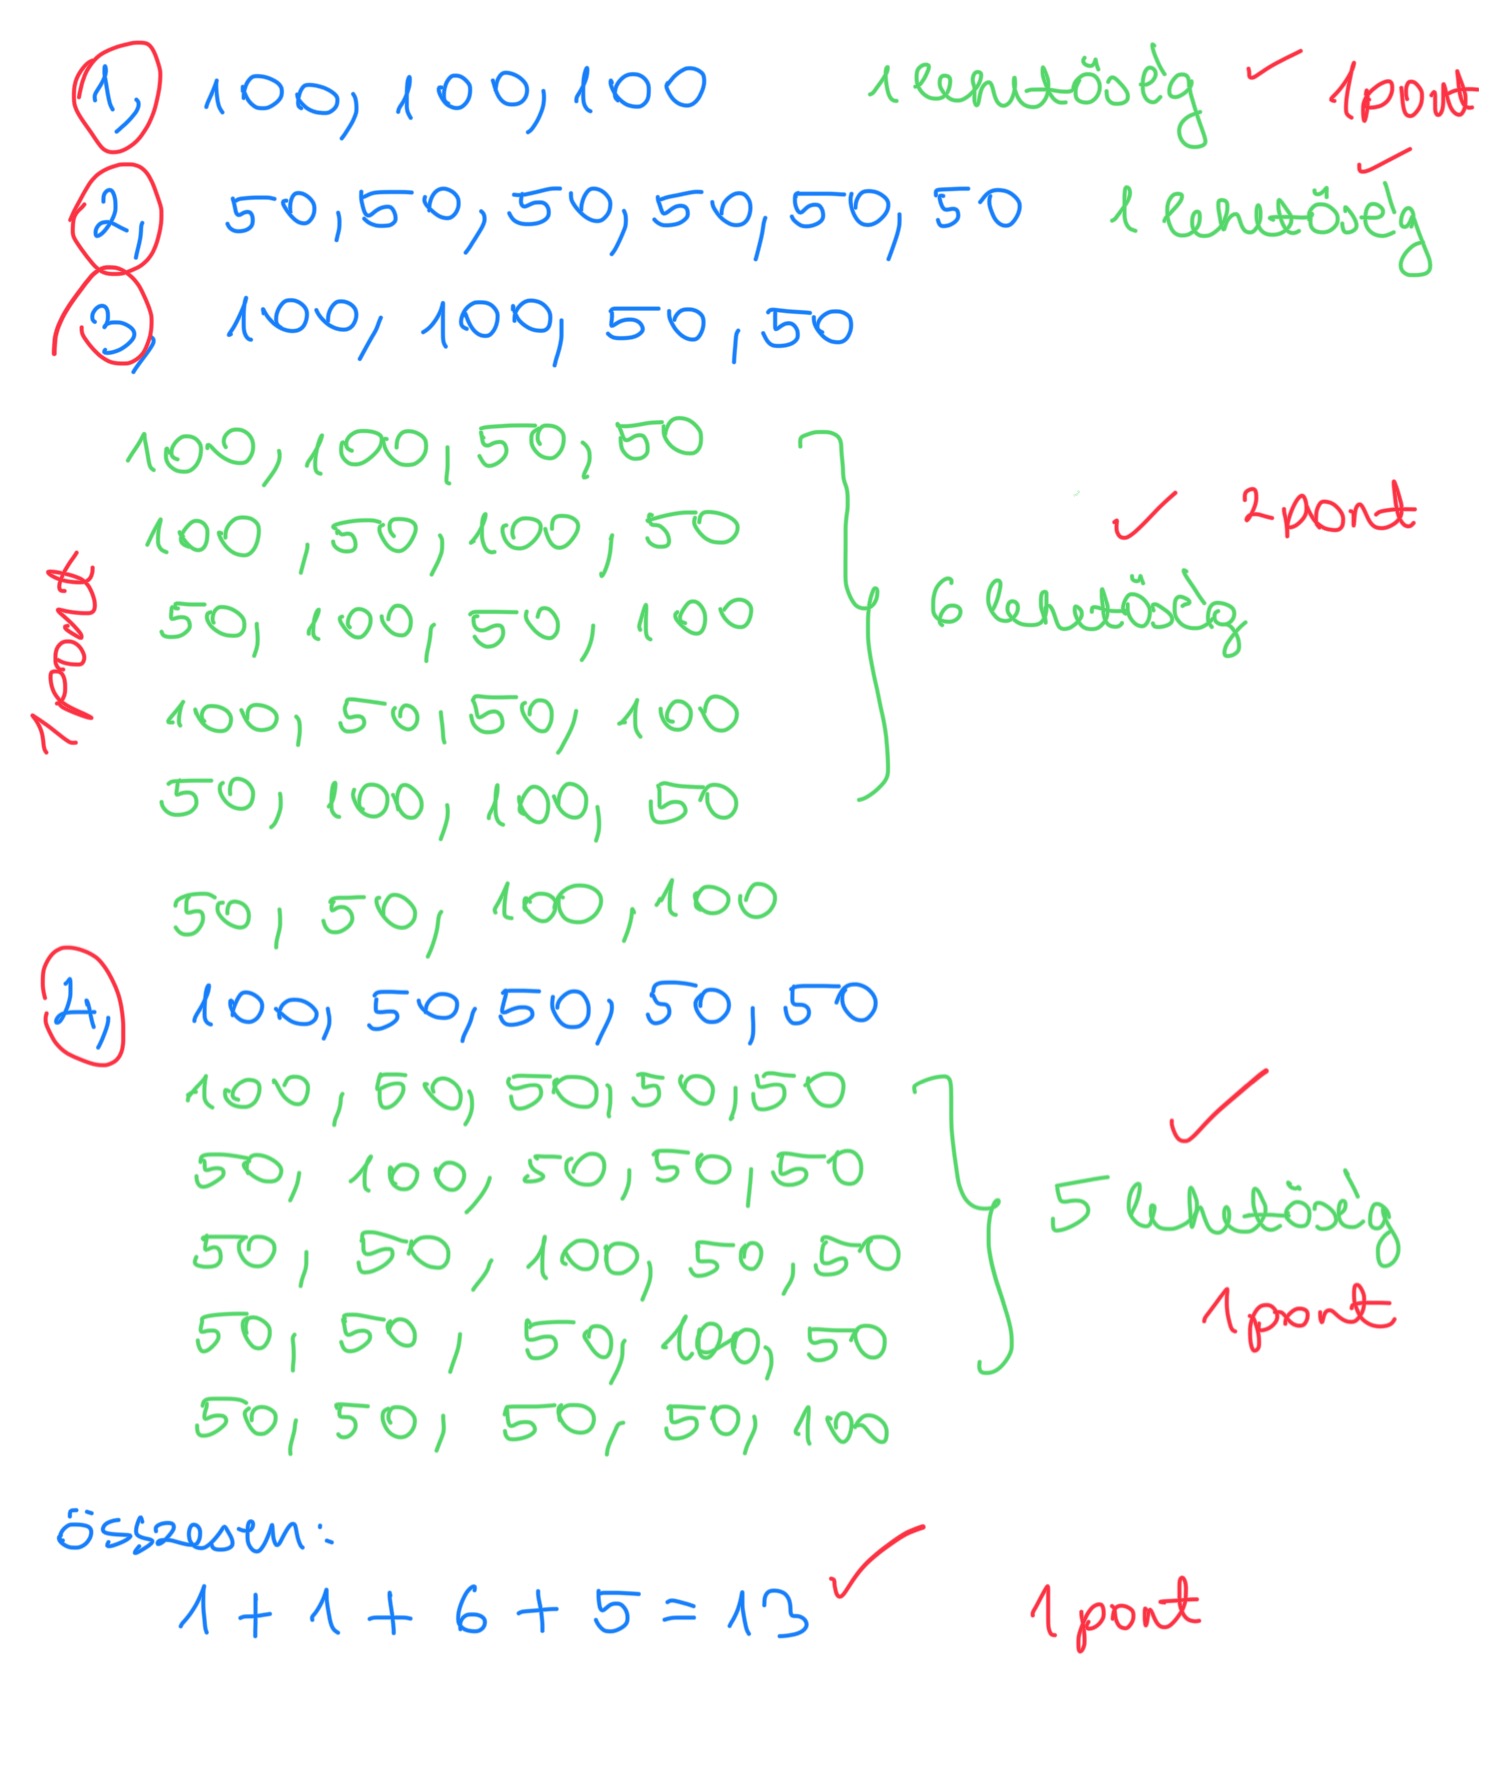 1, 100, 100, 100 1 lehetőség ✓ 1 pont
2, 50, 50, 50, 50, 50, 50 1 lehetőség ✓
3, 100, 100, 50, 50
100, 100, 50, 50
100, 50, 100, 50 ✓ 2 pont
50, 100, 50, 100 6 lehetőség
1 pont
100, 50, 50, 100
50, 100, 100, 50
50, 50, 100, 100
4, 100, 50, 50, 50, 50
100, 50, 50, 50, 50 ✓
50, 100, 50, 50, 50 5 lehetőség
50, 50, 100, 50, 50
50, 50, 50, 100, 50 1 pont
50, 50, 50, 50, 100
összesen:
1 + 1 + 6 + 5 = 13 ✓ 1 pont